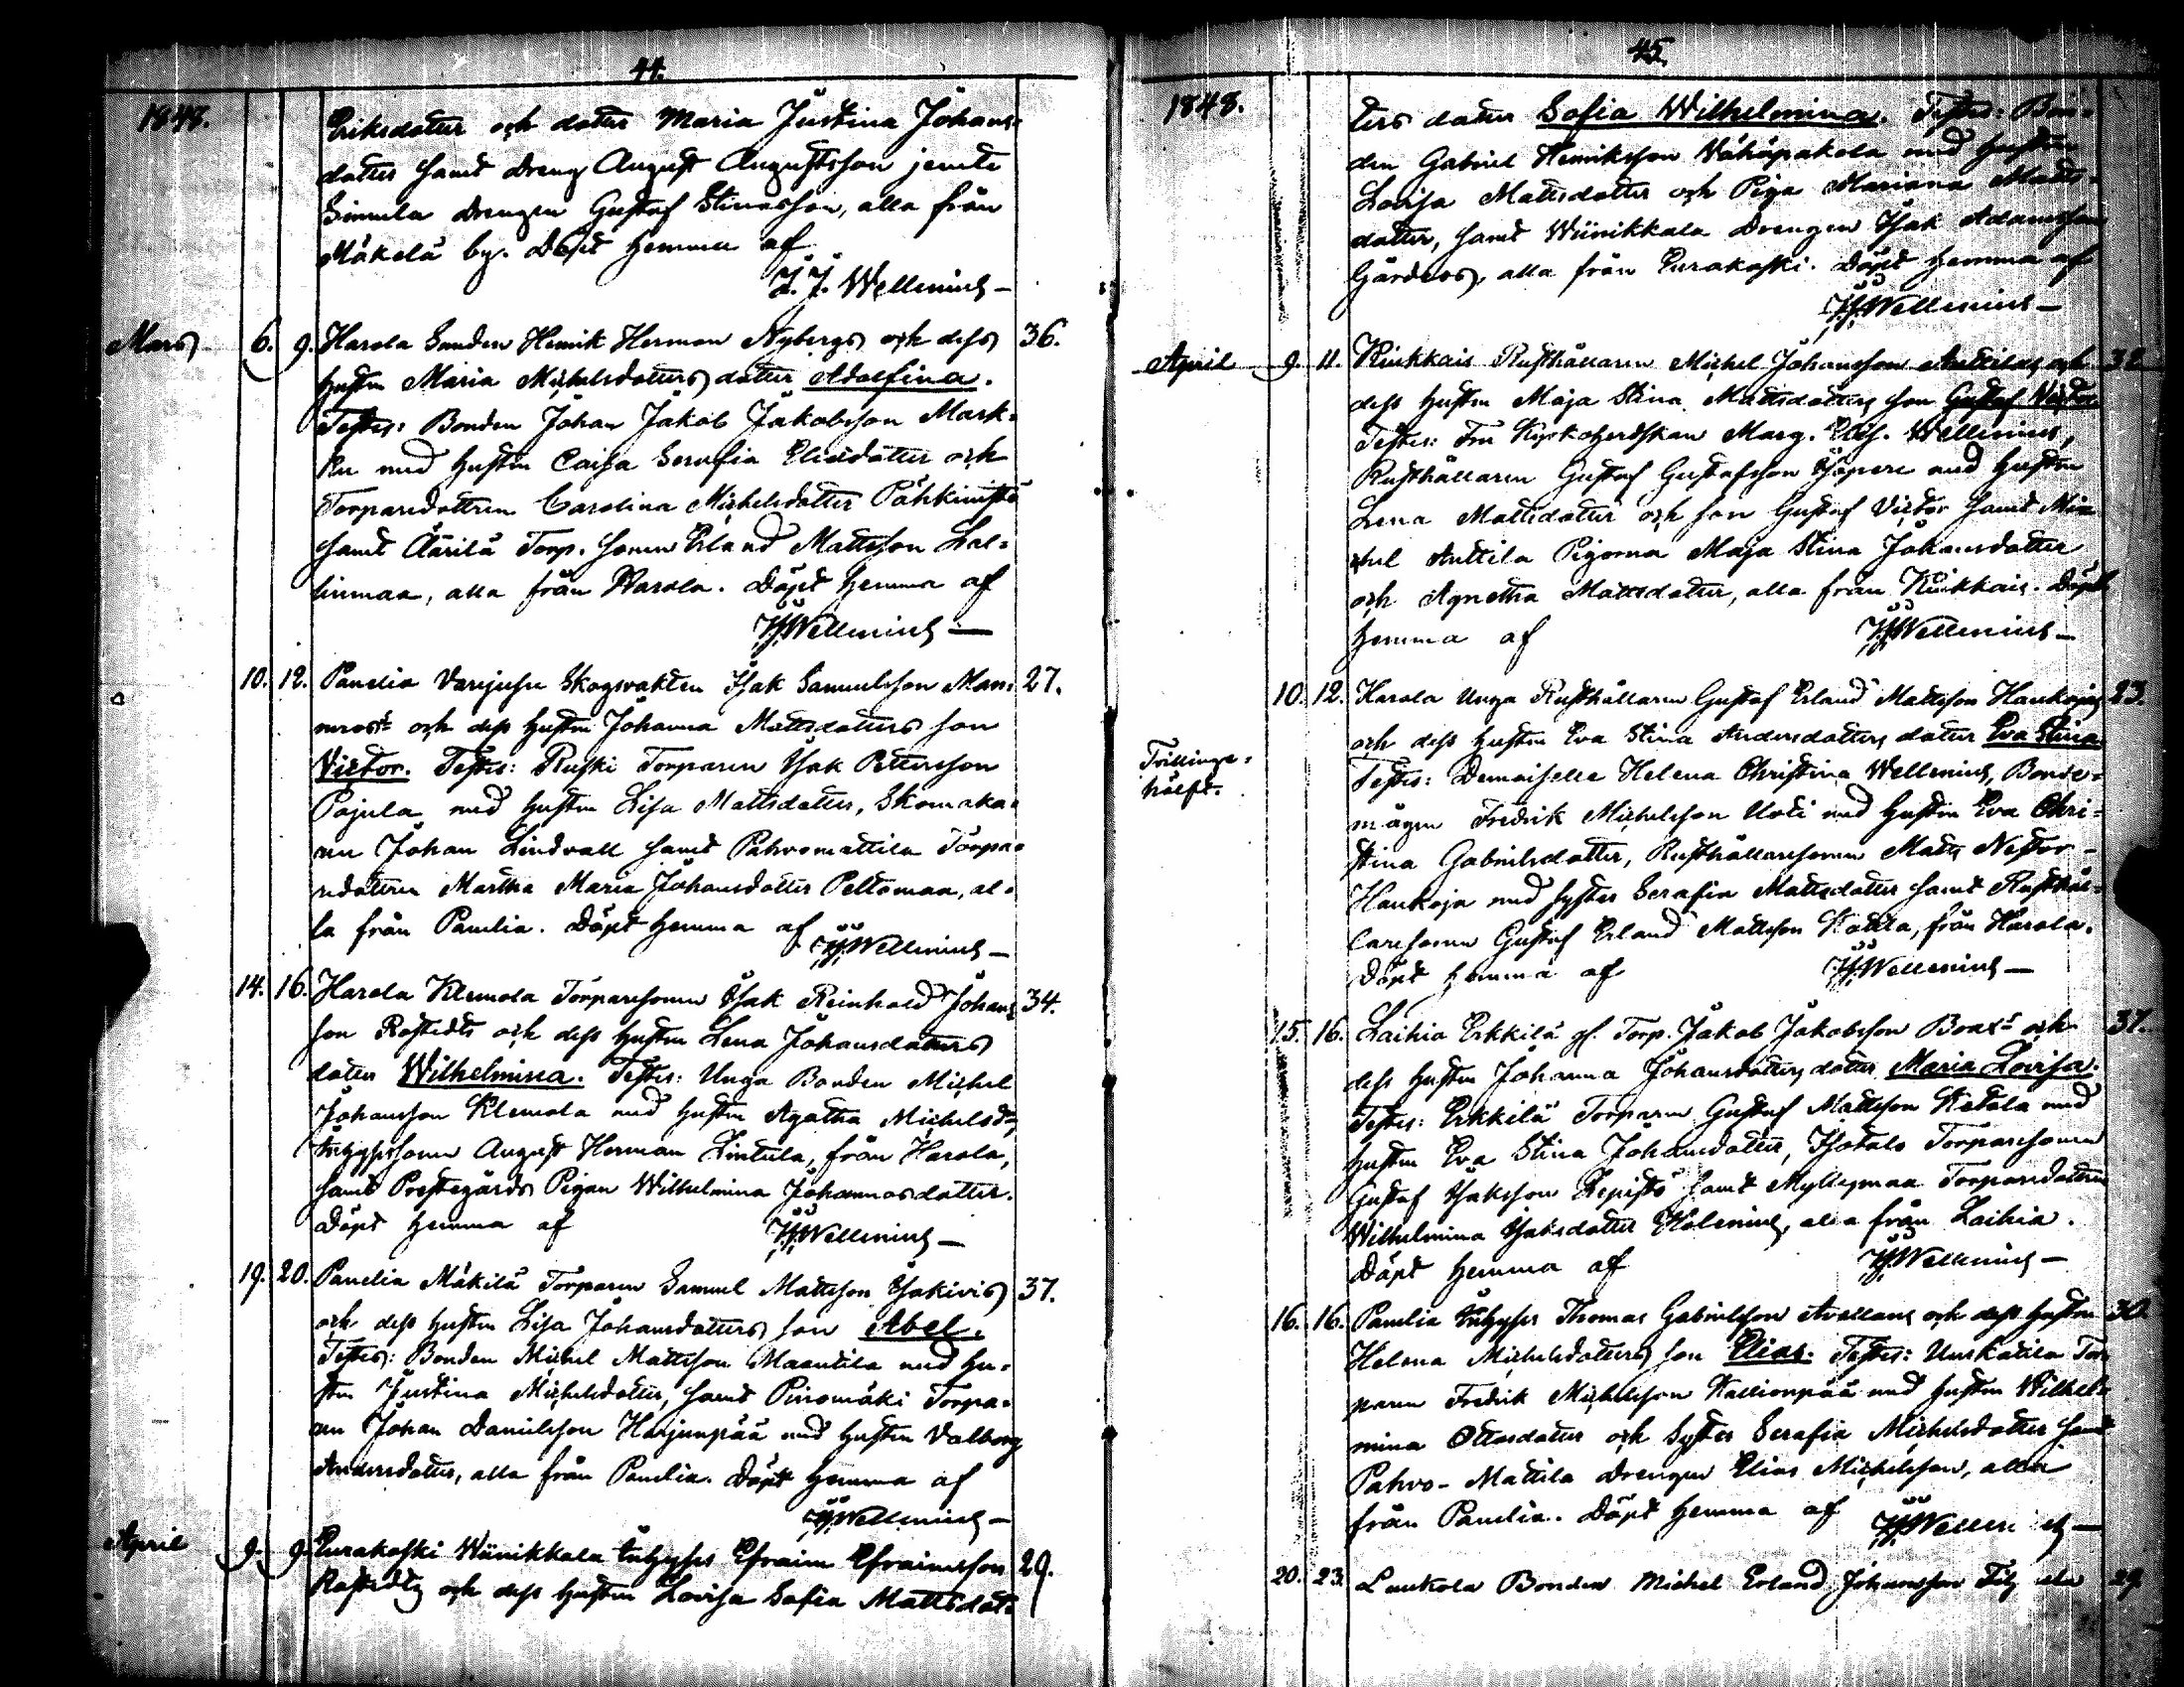 44.
1848.
Eriksdotter och dotter Maria Justina Johans-
dotter samt Dreng August Augustsson jemte
Simula Drengen Gustaf Stinasson, alla från
Mäkelä by. Döpt hemma af
J. J. Wellenius
Mars 6. 9. Harola Smeden Henrik Herman Nybergs och dess 36.
hustru Maria Michelsdotters dotter Adolfina.
Testes: Bonden Johan Jakob Jakobsson Mark-
ku med hustru Caisa Serafia Eliedotter och
Torparedottren Carolina Michelsdotter Pähkinistö
samt Äärilä Torp. sonen Erland Mattsson Lal-
linmaa, alla från Harola. Döpt hemma af
JJWellenius
10. 12. Panelia Varjusse Skogvakten Isak Samuelsson Man- 27.
mrost och dess hustru Johanna Mattsdotters son
Victor. Testes: Ruski Torparen Isak Pettersson
Pajula med hustru Lisa Mattsdotter, Skomaka-
ren Johan Lindvall samt Pahvomattila Torpa-
redottren Martha Maria Johansdotter Peltomaa, al-
la från Panelia. Döpt hemma af
JJWellenius
14. 16. Harola Klemola Torparesonen Isak Reinhold Johans 34.
son Rostedts och dess hustru Lena Johansdotters
dotter Wilhelmina. Testes: Unga Bonden Michel
Johansson Klemola med hustru Agatha Michelsdr,
Inhyssonen August Herman Lintula, från Harola,
samt Prestegårds Pigan Wilhelmina Johannesdotter.
Döpt hemma af
JJWellenius
19. 20. Panelia Mäkilä Torparen Samuel Mattsson Isakivis 37.
och dess hustru Lisa Johansdotters son Abel.
Testes: Bonden Michel Mattsson Maantila med hu-
stru Justina Michelsdotter, samt Pinomäki Torpa-
ren Johan Danielsson Harjunpää med hustru Valborg
Andersdotter, alla från Panelia. Döpt hemma af
JJWellenius
April 9. 9. Eurakoski Wiinikkala Inhyses Efraim Efraimsson 29.
Rostedts och dess hustru Lovisa Sofia Mattsdot-
45.
1848.
ters dotter Sofia Wilhelmina. Testes: Bon-
den Gabriel Henriksson Vähäpakola med hustru
Lovisa Mattsdotter och Piga Mariana Matts-
dotter, samt Wiinikkala Drengen Isak Adamsson
Gärdeos, alla från Eurakoski. Döpt hemma af
JJWellenius
April 9. 11. Kiukkais Rusthållaren Michel Johansson Anttilas och 32
dess hustru Maja Stina Mattsdotters son Gustaf Victor
Testes: Fru Kyrkoherdskan Marg. Elis. Wellenius,
Rusthållaren Gustaf Gustafsson Isopere med hustru
Lena Mattsdotter och son Gustaf Victor samt Mi-
chel Anttila Pigorna Maja Stina Johansdotter
och Agnetha Mattsdotter, alla från Kiukkais. Döpt
hemma af
JJWellenius
10. 12. Harola Unga Rusthållaren Gustaf Erland Mattsson Haukojas 23.
och dess hustru Eva Stina Andersdotters dotter Eva Stina
Trillinge-
hälft.
Testes: Demoiselle Helena Christina Wellenius, Bonde-
mågen Fredrik Michelsson Uoti med hustru Eva Chri-
stina Gabrielsdotter, Rusthållaresonen Matts Nestor
Haukoja med syster Serafia Mattsdotter samt Rusthål-
laresonen Gustaf Erland Mattsson Kattla, från Harola.
Döpt hemma af
JJWellenius
15. 16. Laihia Erkkilä gl. Torp. Jakob Jakobsson Boxs och 37.
dess hustru Johanna Johansdotters dotter Maria Lovisa.
Testes: Erkkilä Torparen Gustaf Mattsson Ketola med
hustru Eva Stina Johansdotter, Isotalo Torparesonen
Gustaf Isaksson Lepistö samt Myllymaa Torparedottren
Wilhelmina Isaksdotter Holenius, alla från Laihia.
Döpt hemma af
JJWellenius
16. 16. Panelia Inhyses Thomas Gabrielsson Avellans och dess hustru 30.
Helena Michelsdotters son Elias. Testes: Uuskatila Tor-
paren Fredrik Michelsson Kallionpää med hustru Wilhel-
mina Ottosdotter och Syster Serafia Michelsdotter samt
Pahvo-Mattila Drengen Elias Michelsson, alla
från Panelia. Döpt hemma af
JJWellenius
20. 23. Laukola Bonden Michel Erland Johansson 29.